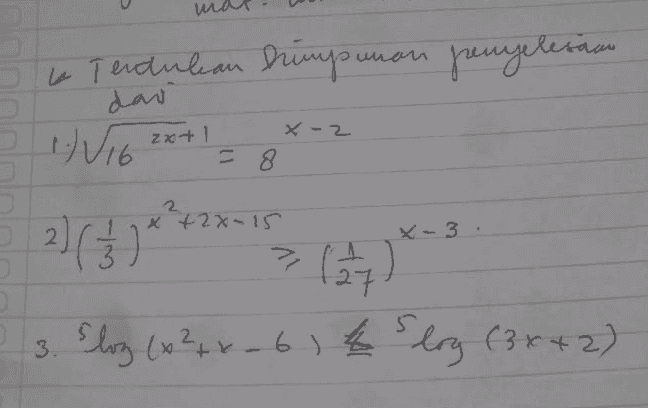 Tentukan himpunan penyelesaian
dari
1.) √16^{2x+1} = 8^{x-2}
2) (1/3)^{x^2+2x-15} ≥ (1/27)^{x-3}.
3. ⁵log (x²+x-6) ≤ ⁵log (3x+2)